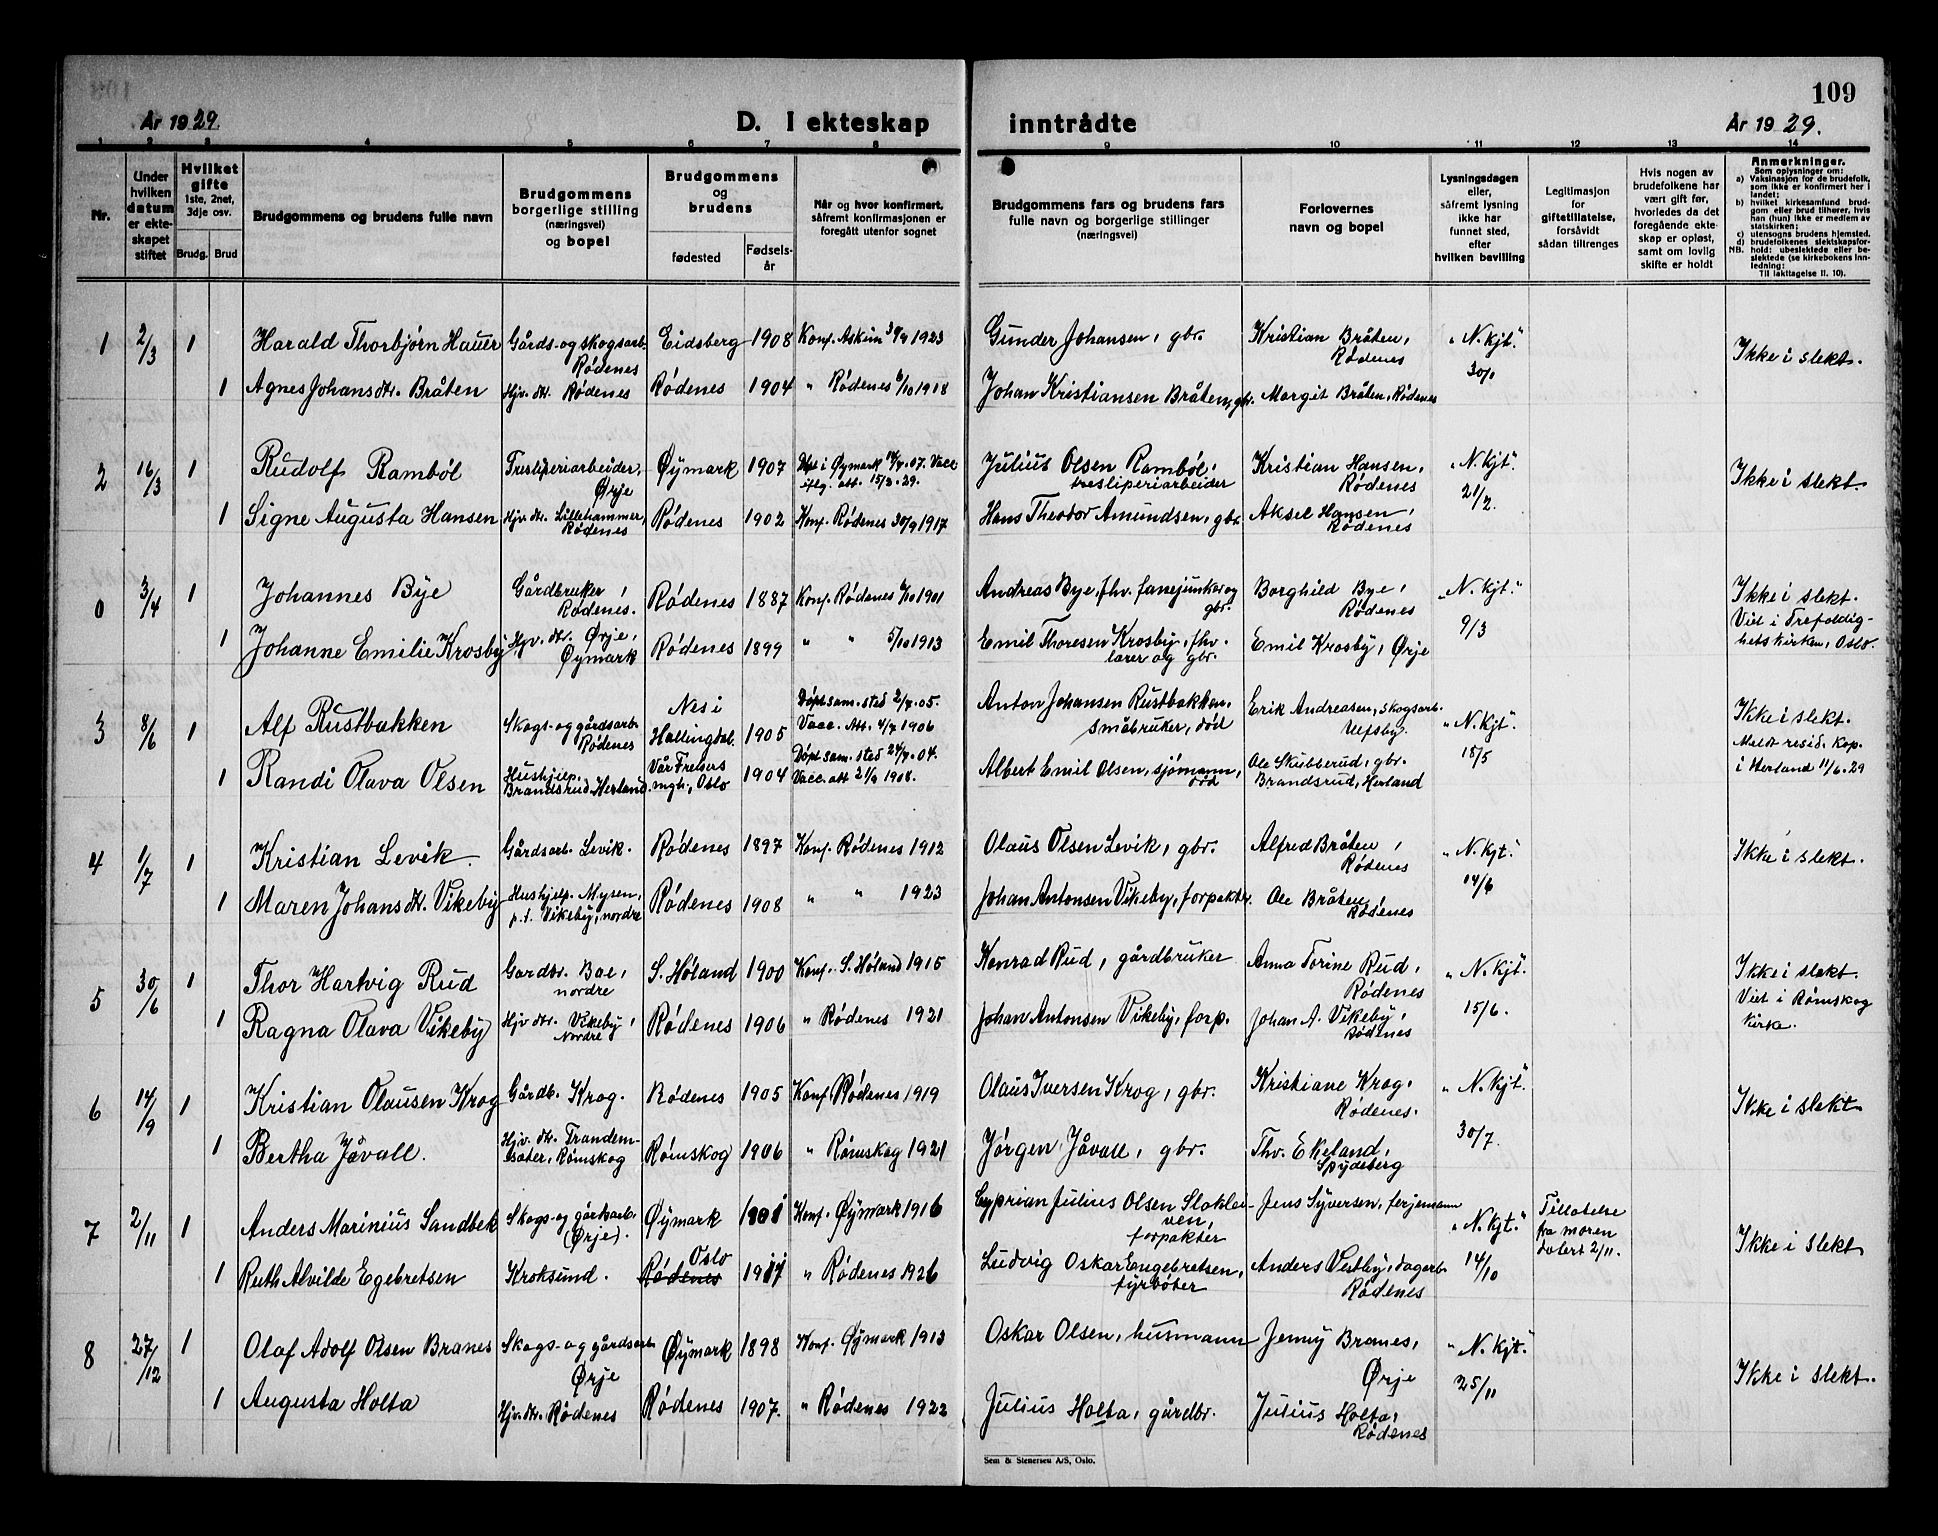 109
År 1929.
D. I ekteskap inntrådte
År 1929.
1 2 3 4 5 6 7 8 9 10 11 12 13 14
Nr.
Under hvilken datum er ekteskapet stiftet
Hvilket gifte 1ste, 2net, 3dje osv.
Brudg. Brud
Brudgommens og brudens fulle navn
Brudgommens borgerlige stilling (næringsvei) og bopel
Brudgommens og brudens
fødested
Fødselsår
Når og hvor konfirmert, såfremt konfirmasjonen er foregått utenfor sognet
Brudgommens fars og brudens fars fulle navn og borgerlige stillinger (næringsvei)
Forlovernes navn og bopel
Lysningsdagen eller, såfremt lysning ikke har funnet sted, efter hvilken bevilling
Legitimasjon for giftetillatelse, forsåvidt sådan tiltrenges
Hvis nogen av brudefolkene har vært gift før, hvorledes da det foregående ekteskap er opløst, samt om lovlig skifte er holdt
Anmerkninger.
Som oplysninger om:
a) Vaksinasjon for de brudefolk, som ikke er konfirmert her i landet;
b) hvilket kirkesamfund brudgom eller brud tilhører, hvis han (hun) ikke er medlem av statskirken;
c) utensogns brudens hjemsted.
d) brudefolkenes slektskapsforhold: ubeslektede eller beslektede (se kirkebokens innledning;
NB. Til iakttagelse II. 10).
1 2/3 1 Harald Thorbjørn Hauer Gårds- og skogsarb. Rødenes Eidsberg 1908 Konf. Askim 1923 Gunder Johansen, gbr. Kristian Bråten, Rødenes "N. Kjt." 30/1 Ikke i slekt.
1 Agnes Johansdtr. Bråten Hjv. dtr. Rødenes Rødenes 1904 " Rødenes 6/10 1918 Johan Kristiansen Bråten, gbr. Margit Bråten, Rødenes
2 16/3 1 Rudolf Rambøl Tresliperiarbeider, Ørje Øymark 1907 Døpt i Øymark 07. Vacc iflg. att. 15/3. 29. Julius Olsen Rambøl, tresliperiarbeider Kristian Hansen, Rødenes "N. Kjt." 21/2. Ikke i slekt.
1 Signe Augusta Hansen Hjv. dtr. Lillehammer, Rødenes Rødenes 1902 Konf. Rødenes 30/9 1917 Hans Theodor Amundsen, gbr. Aksel Hansen, Rødenes
0 3/4 1 Johannes Bye Gårdbruker, Rødenes. Rødenes 1887 Konf. Rødenes 1901 Andreas Bye, fhv. fanejunker og gbr. Borghild Bye, Rødenes "N. Kjt." 9/3 Ikke i slekt. Viet i Trefoldighetskirken, Oslo.
1 Johanne Emilie Krosby Hjv. dtr. Ørje, Øymark Rødenes 1899 " " 5/10 1913 Emil Thoresen Krosby, fhv. lærer og gbr. Emil Krosby, Ørje
3 8/6 1 Alf Rustbakken Skogs- og gårdsarb. Rødenes Nes i Hallingdal. 1905 Døpt sam. sted 2/7. 05. Vacc. Att. 4/7 1906 Anton Johansen Rustbakken, småbruker, død Erik Andreasen, skogsarb. Ulfsby. "N. Kjt." 18/5 Ikke i slekt. Meldt resid. kap. i Herland 11/6. 29
1 Randi Olava Olsen Hushjelp, Brandsrud, Herland Vår Frelsers mgh., Oslo 1904 Døpt sam. sted 24/7. 04. Vacc. att 1908. Albert Emil Olsen, sjømann, død Ole Skubberud, gbr. Brandsrud, Herland
4 1/7 1 Kristian Levik. Gårdsarb. Levik. Rødenes 1897 Konf. Rødenes 1912 Olaus Olsen Levik, gbr. Alfred Bråten, Rødenes "N. Kjt." 14/6 Ikke i slekt.
1 Maren Johansdtr. Vikeby Hushjelp. Mysen, p.t. Vikeby, nordre Rødenes 1908 " " 1923 Johan Antonsen Vikeby, forpakter. Ole Bråten, Rødenes
5 30/6 1 Thor Hartvig Rud Gardbr. Boe, nordre S. Høland 1900 Konf. S. Høland 1915 Konrad Rud, gårdbruker Anna Torine Rud, Rødenes "N. Kjt." 15/6. Ikke i slekt. Viet i Rømskog kirke.
1 Ragna Olava Vikeby Hjv dtr. Vikeby, Nordre Rødenes 1906 " Rødenes 1921 Johan Antonsen Vikeby, forp. Johan A. Vikeby, Rødenes
6 14/9 1 Kristian Olausen Krog Gårdb. Krog. Rødenes 1905 Konf. Rødenes 1919 Olaus Iversen Krog, gbr. Kristiane Krog, Rødenes. "N. Kjt." 30/7. Ikke i slekt
1 Bertha Jåvall. Hjv. dtr. Trandemsæter, Rømskog Rømskog 1906 " Rømskog 1921 Jørgen Jåvall, gbr. Thv. Ekeland, Spydeberg
7 2/11 1 Anders Marinius Sandbek Skogs- og gårdsarb. (Ørje). Øymark 1901 Konf. Øymark 1916 Cyprian Julius Olsen Slokleiven, forpakter Jens Syversen, ferjemann "N. Kjt." 14/10 Tillatelse fra moren datert 2/11. Ikke i slekt
1 Ruth Alvilde Egebretsen Kroksund. Oslo Rødenes 1911 " Rødenes 1926 Ludvig Oskar Engebretsen, fyrbøter Anders Vestby, dagarb. Rødenes
8 27/12 1 Olaf Adolf Olsen Branes Skogs- og gårdsarb. Ørje Øymark 1898 Konf. Øymark 1913 Oskar Olsen, husmann Jenny Branes, Ørje "N. Kjt." 25/11 Ikke i slekt.
1 Augusta Holta Hjv. dtr. Rødenes Rødenes 1907. " Rødenes 1922 Julius Holta, gårdbr. Julius Holta, Rødenes
Sem & Stenersen A/S, Oslo.